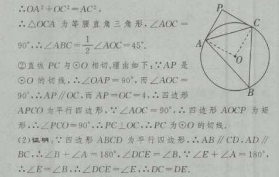 ∴OA²+OC²=AC²,
∴△OCA 为等腰直角三角形,∠AOC=
90°,∴∠ABC=1/2∠AOC=45°.
②直线 PC 与⊙O 相切,理由如下:∵AP 是
⊙O 的切线,∴∠OAP=90°,而∠AOC=
90°,∴AP∥OC,而 AP=OC=4,∴四边形
APCO 为平行四边形,∵∠AOC=90°,∴四边形 AOCP 为矩
形,∴∠PCO=90°,∴PC⊥OC,∴PC 为⊙O 的切线.
(2)证明:∵四边形 ABCD 为平行四边形,∴AB∥CD,AD∥
BC,∴∠B+∠A=180°,∠DCE=∠B,∵∠E+∠A=180°,
∴∠E=∠B,∴∠DCE=∠E,∴DC=DE.
P
C
A
O
B